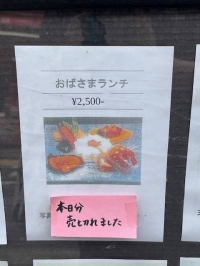 おばさまランチ
¥2,500-
本日分
売り切れました
写真